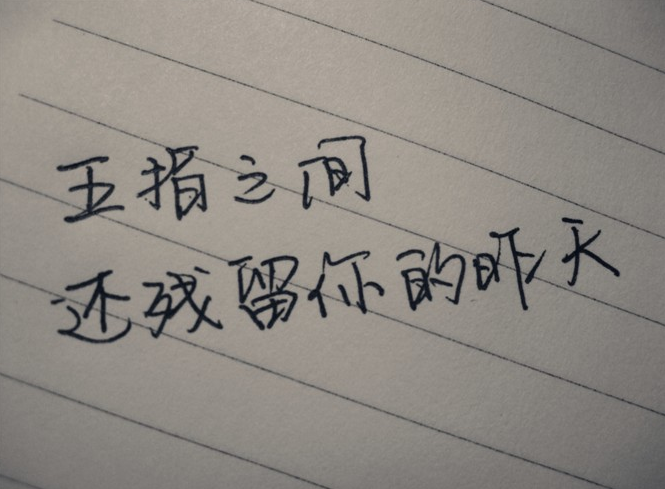 五指之间
还残留你的昨天